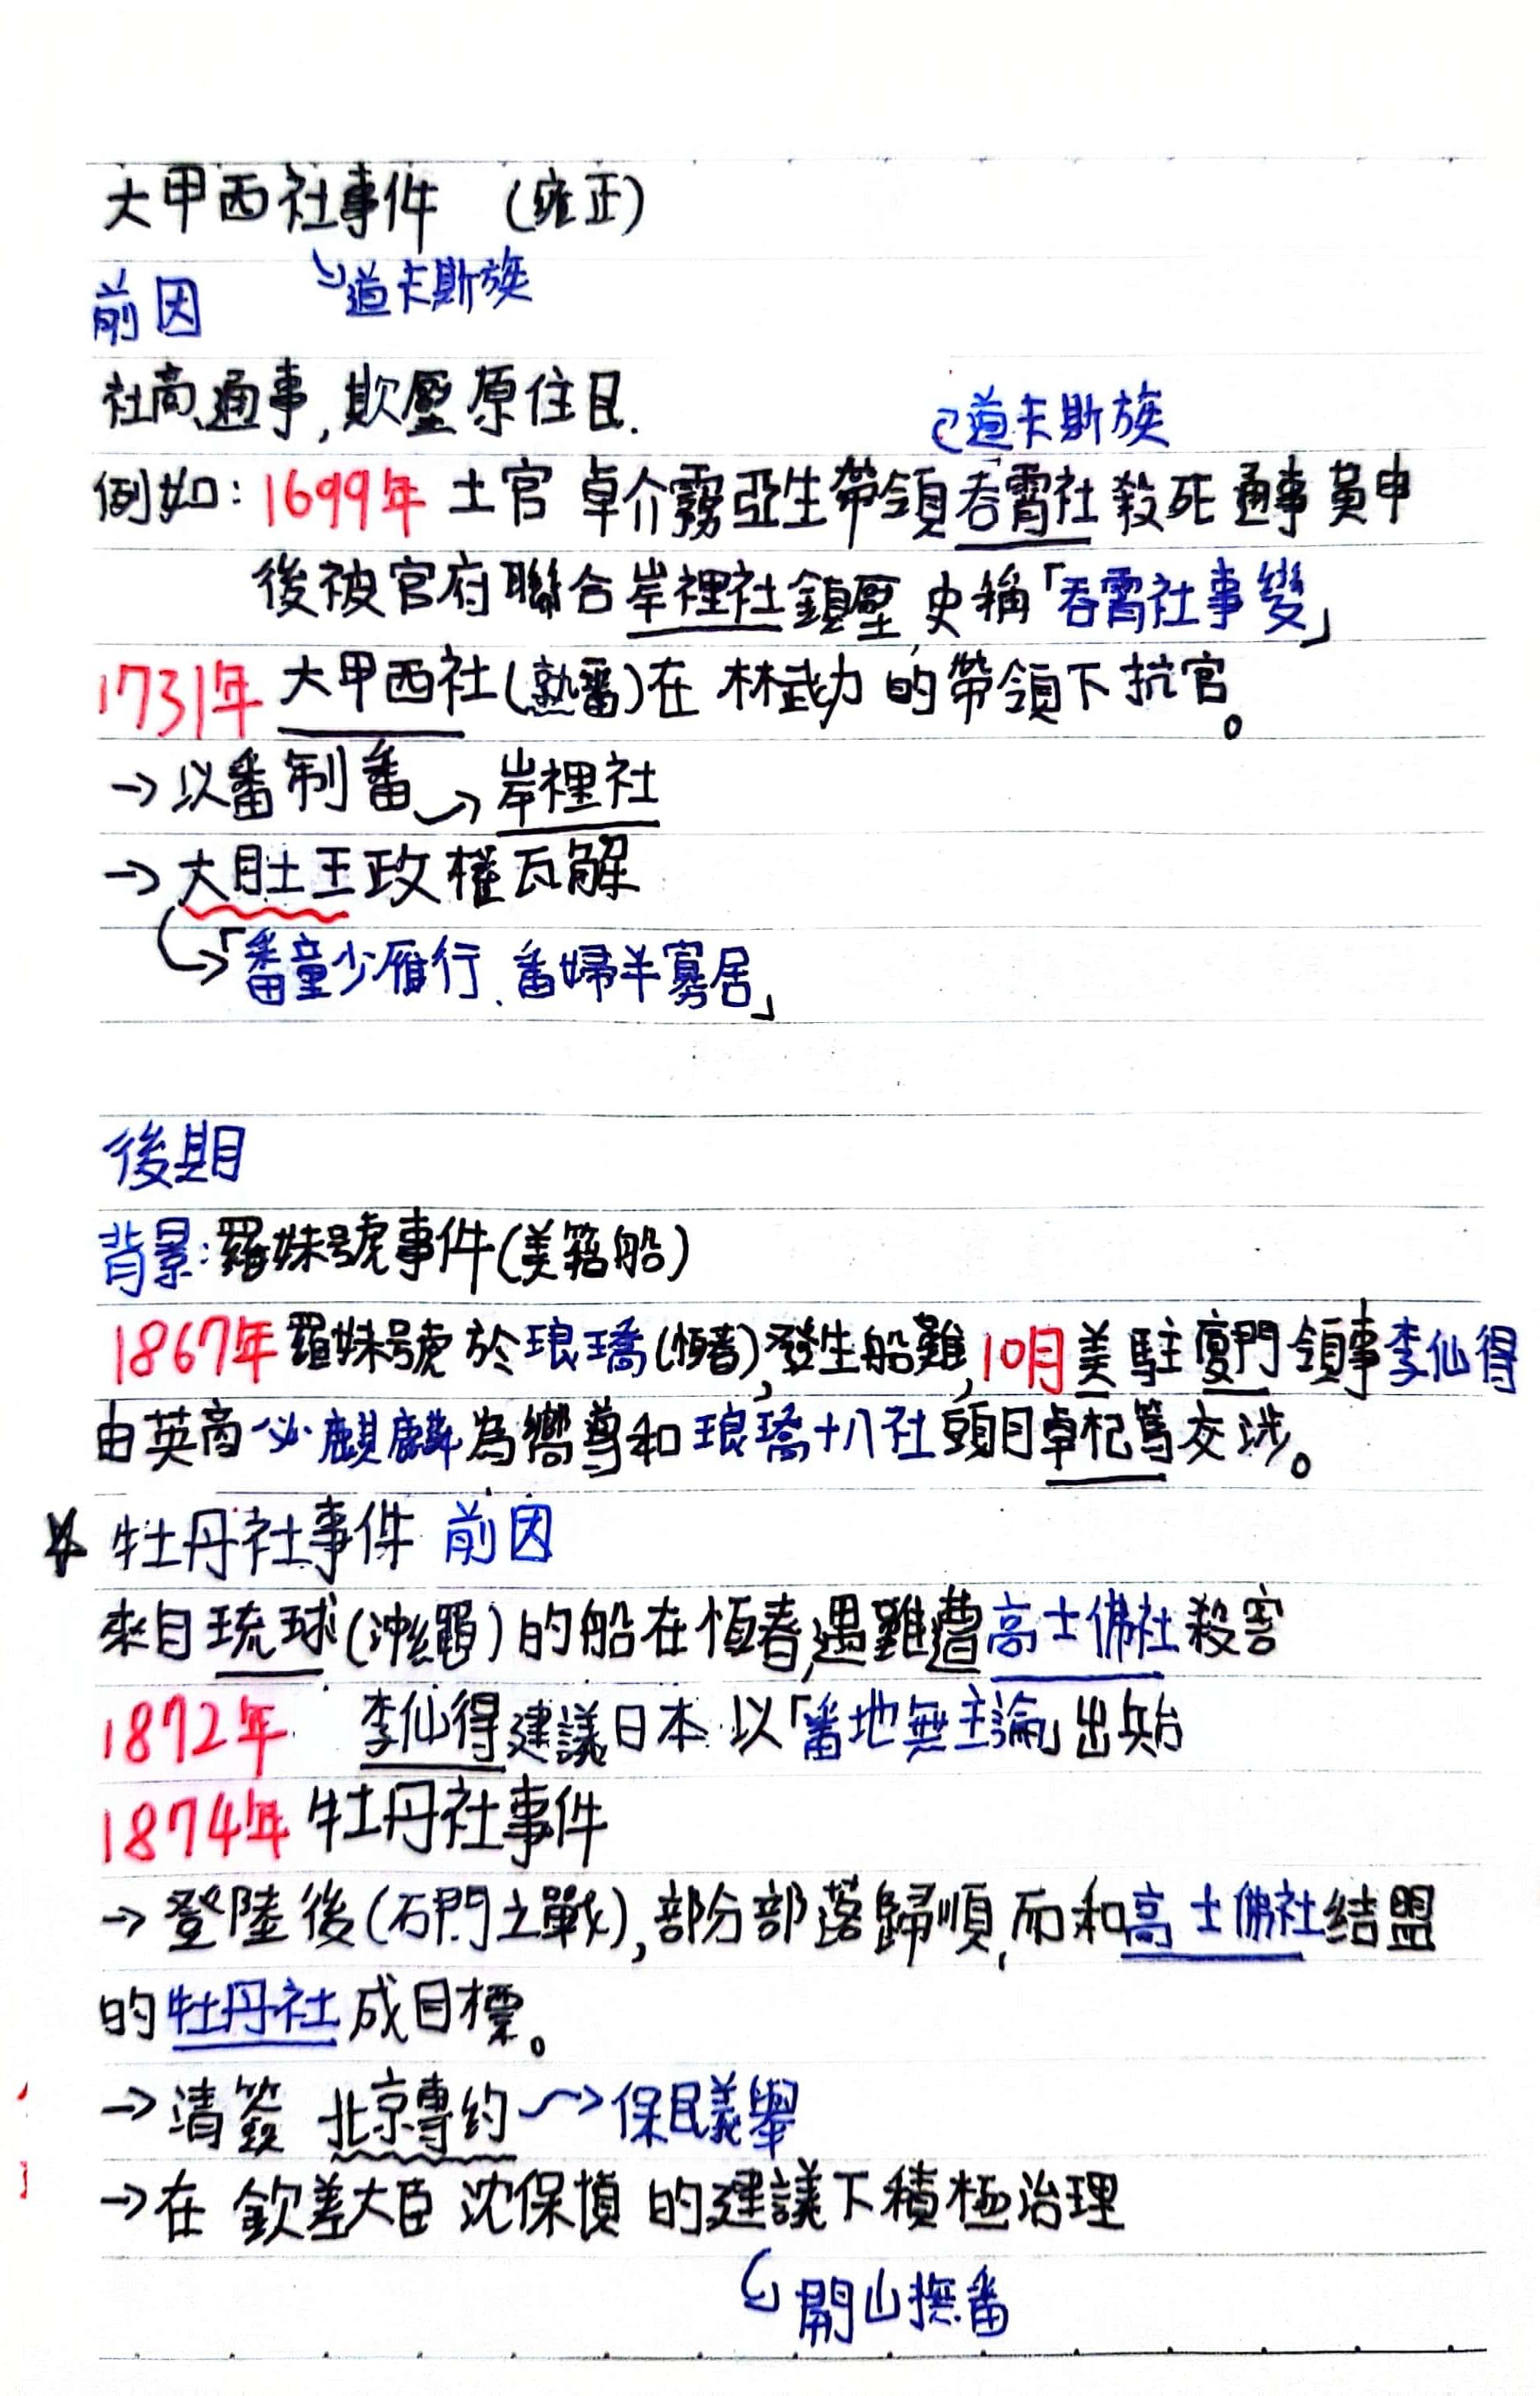 大甲西社事件 (雍正)
↘道卡斯族
前因
社商、通事,欺壓原住民.
道卡斯族
例如:1699年 土官 卓介霧亞生帶領吞霄社殺死通事黃申
後被官府聯合岸裡社鎮壓,史稱「吞霄社事變」
1731年 大甲西社(熟番)在 林武力 的帶領下抗官。
→以番制番→岸裡社
→大肚王政權瓦解
→「番童少雁行、番婦半寡居」
後期
背景:羅妹號事件(美籍船)
1867年羅妹號於琅𤩝(恆春),發生船難,10月美駐廈門領事李仙得
由英商必麒麟為嚮導和琅𤩝十八社頭目卓杞篤交涉。
☆牡丹社事件 前因
來自琉球(沖繩)的船在恆春,遇難遭高士佛社殺害
1872年 李仙得建議日本以「番地無主論」出兵台
1874年牡丹社事件
→登陸後(石門之戰),部分部落歸順,而和高士佛社結盟
的牡丹社成目標。
→清簽 北京專約→保民義舉
→在 欽差大臣 沈保楨 的建議下積極治理
開山撫番